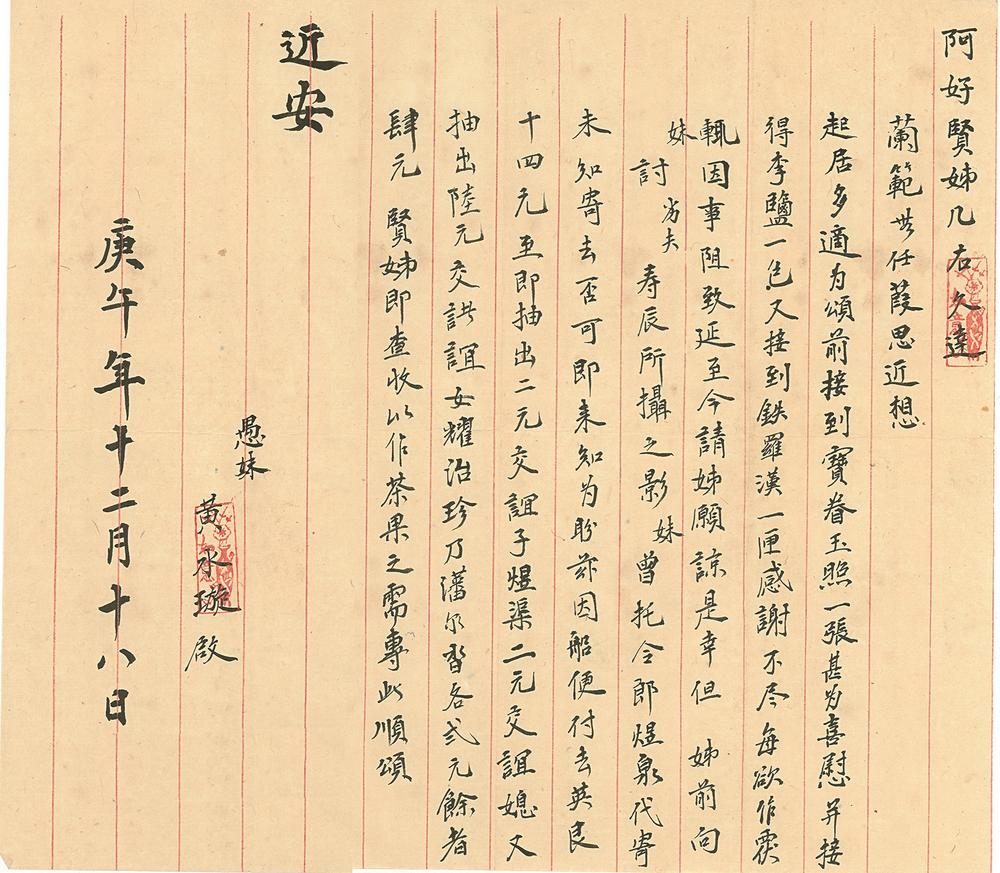 阿好賢姊几右久違
蘭範世任葭思近想
起居多適为頌前接到寶眷玉照一張甚为喜慰并接
得李鹽一包又接到鉄羅漢一匣感謝不尽每欲作覆
輒因事阻致延至今請姊願諒是幸但 姊前向
妹討劣夫寿辰所攝之影妹曾托令郎煜泉代寄
未知寄去否可即来知为盼茲因船便付去英艮
十四元至即抽出二元交誼子煜渠二元交誼媳又
抽出陸元交誼女耀治珍乃瀋各弍元餘者
肆元 賢姊即查收以作茶果之需專此順頌
近安
愚妹
黄永璇啟
庚午年十二月十八日